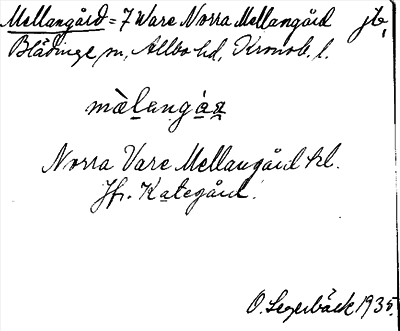 Mellangård = 7 Ware Norra Mellangård jb,
Blädinge sn, Allbo hd, Kronob. l.
màlangáz
Norra Vare Mellangård kl.
Jfr. Kategård.
O. Segerbäck 1935.